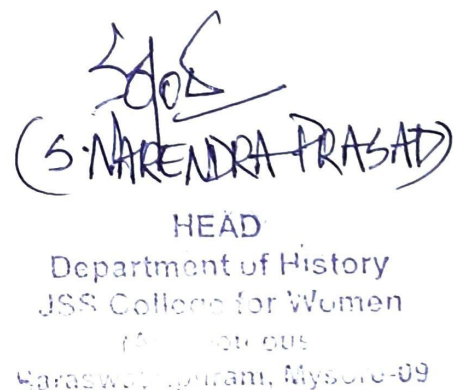 (S. NARENDRA PRASAD)
HEAD
Department of History
JSS College for Women
Mysore-09